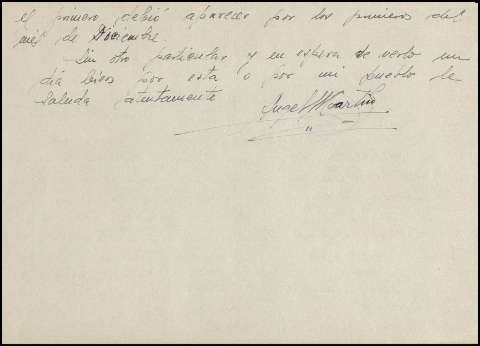 el primero debió aparecer por los primeros del
mes de Diciembre.
Sin otro particular y en espera de verlo un
día bien por esta o por mi pueblo le
saluda atentamente
Angel Martín